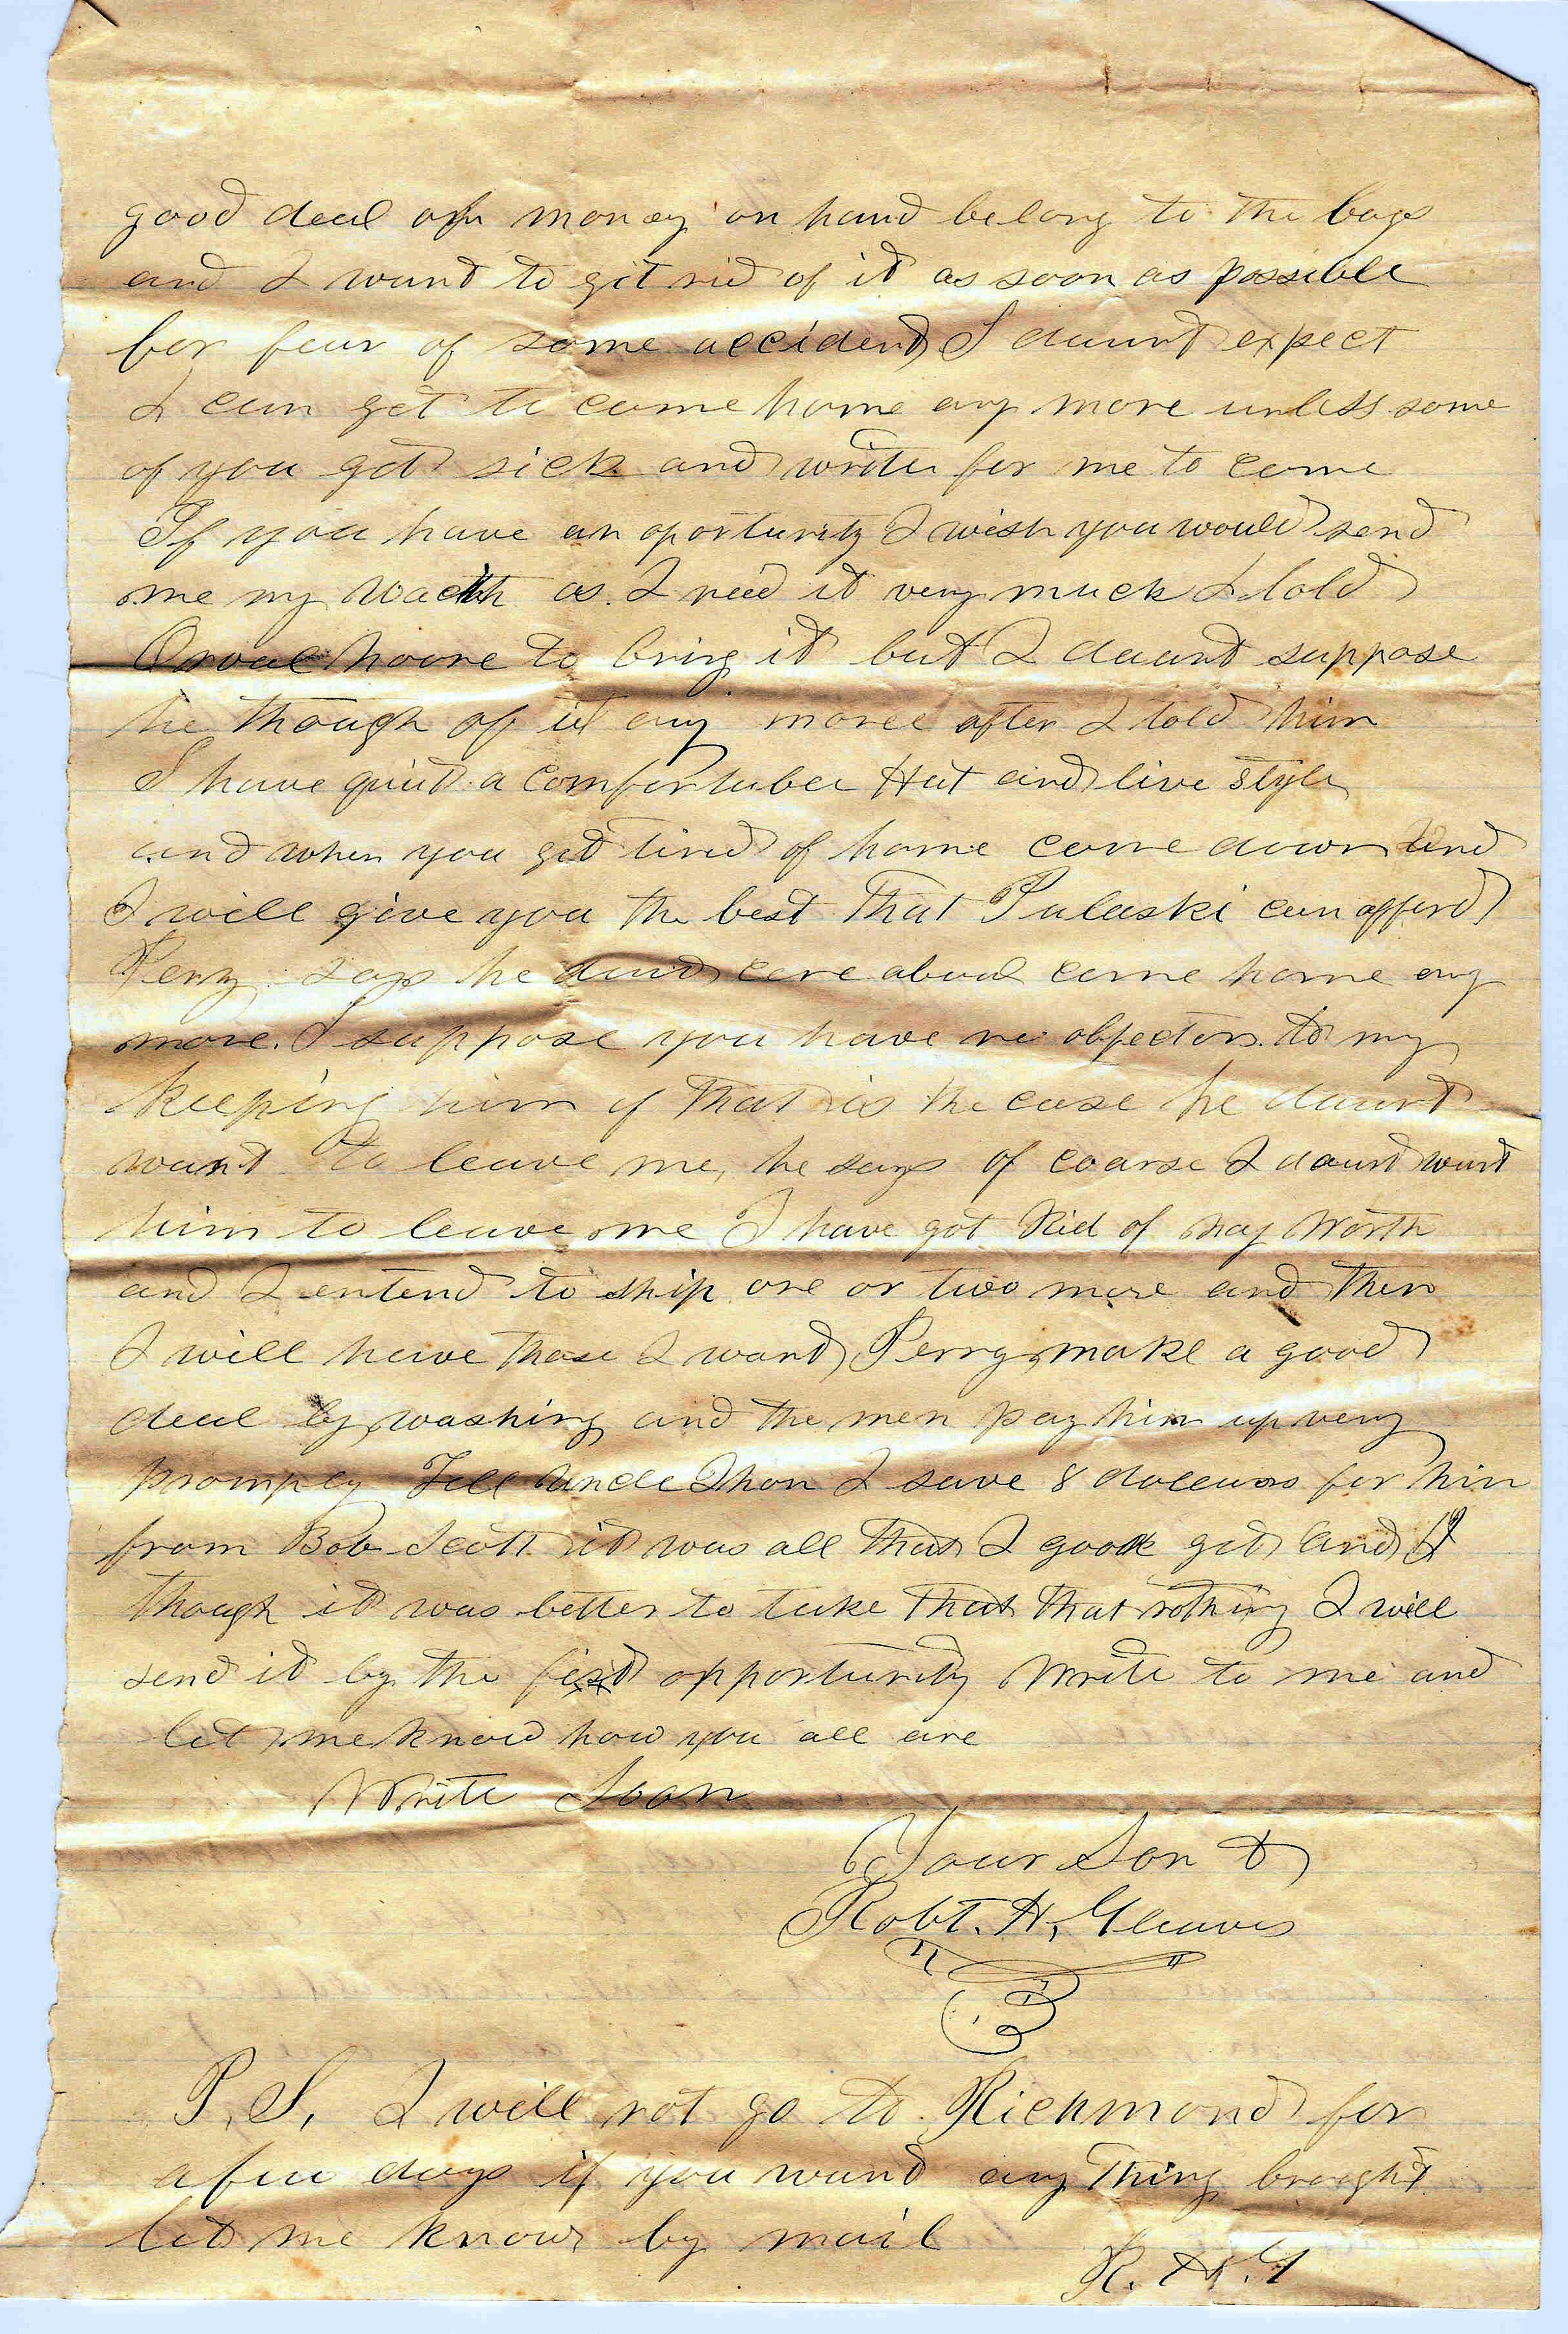 good deal of money on hand belong to the boys
and I want to git rid of it as soon as possible
for fear of some accident, I daunt expect
I can get to come home any more unless some
of you get sick and write for me to come
If you have an oportunity I wish you would send
me my wacth as I need it very much I told
hoove to bring it but I daunt suppose
he though of it any more after I told him
I have quit a comfortuber Hut and live style
and when you get tired of home come down and
I will give you the best that Pulaski can afford
Perry says he daunt care about come home any
more. I suppose you have no objectors to my
keeping him if that is the case he daunt
want to leave me, he says of coarse I daunt want
him to leave me I have got Rid of Worth
and I entend to ship one or two more and then
I will have those I want, Perry make a good
deal by washing and the men pay him up very
promply Tell Uncle Jhon I save 8 dollars for him
from Bob Scott it was all that I get and I
though it was better to take that that nothing I will
send it by the first opportunity Write to me and
let me know how you all are
Write Soon
Your Son &
Robt. H. Gleaves
P. S. I will not go to Richmond for
a few days if you want any thing brought
let me know by mail
R. H. G